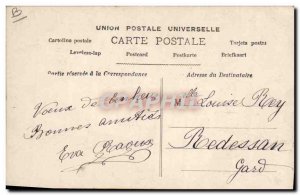 UNION POSTALE UNIVERSELLE
CARTE POSTALE
Cartolina postale
Tarjeta postal
Levelezo-lap
Postcard
Postkarte
Briefkaart
Partie réservée à la Correspondance
Adresse du Destinataire
Voeux de bonheur
Bonnes amitiés
Eva
Melle Louise Rey
Redessan
Gard